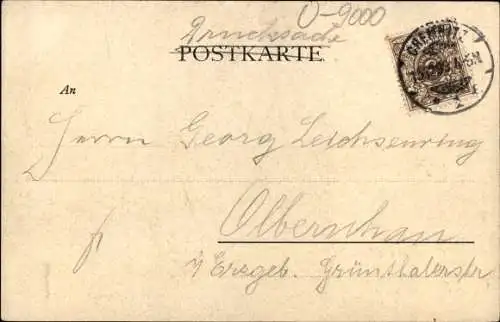 O-9000
Drucksache
POSTKARTE
CHEMNITZ
An
Herrn Georg Leichsenring
Olbernhau
i/Erzgeb. Grünthalerstr